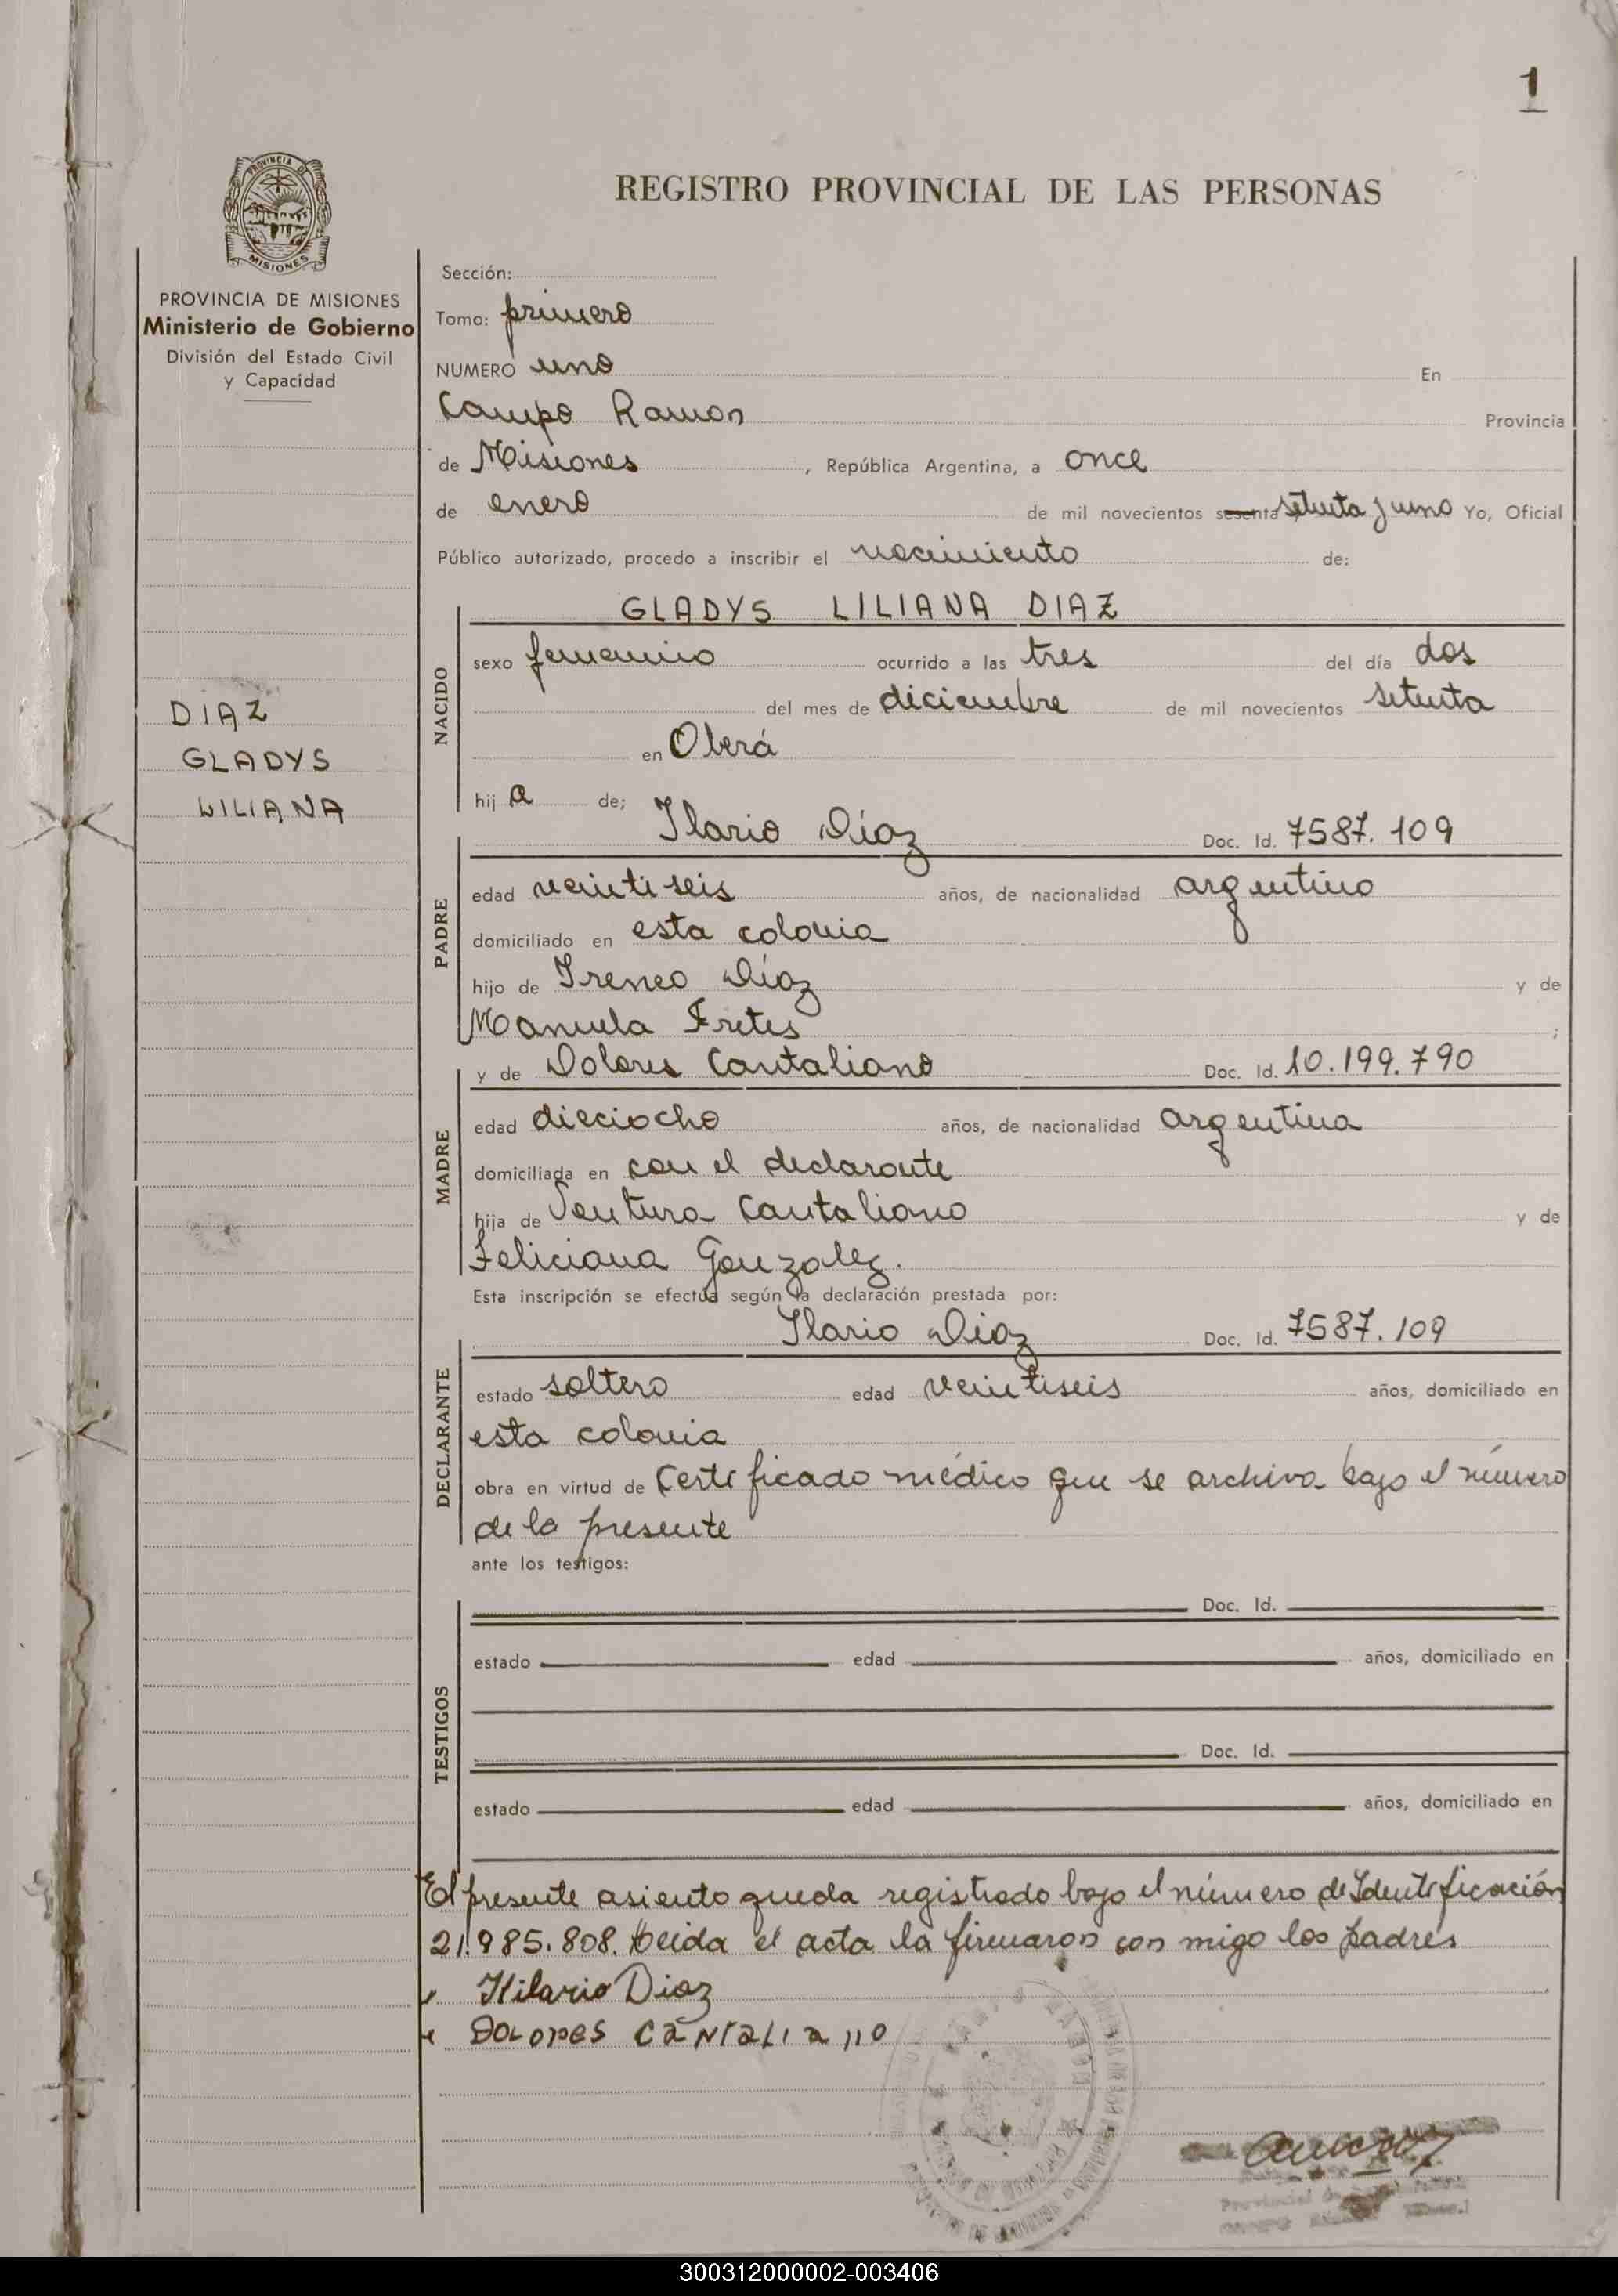 1
REGISTRO PROVINCIAL DE LAS PERSONAS
PROVINCIA DE MISIONES
Ministerio de Gobierno
División del Estado Civil
y Capacidad
DIAZ
GLADYS
LILIANA
Sección:
Tomo: primero
NUMERO uno En
Campo Ramon Provincia
de Misiones, República Argentina, a once
de enero de mil novecientos sesenta setenta y uno Yo, Oficial
Público autorizado, procedo a inscribir el nacimiento de:
GLADYS LILIANA DIAZ
NACIDO
sexo femenino ocurrido a las tres del día dos
del mes de diciembre de mil novecientos setenta
en Oberá
hija de;
Ilario Díaz Doc. Id. 7587.109
PADRE
edad veinti seis años, de nacionalidad argentino
domiciliado en esta colonia
hijo de Ireneo Díaz y de
Manuela Fretes ;
y de Dolores Cantaliano Doc. Id. 10.199.790
MADRE
edad dieciocho años, de nacionalidad argentina
domiciliada en con el declarante
hija de Ventura Cantaliano y de
Feliciana Gonzalez.
Esta inscripción se efectúa según la declaración prestada por:
Ilario Diaz Doc. Id. 7587.109
DECLARANTE
estado soltero edad veintiseis años, domiciliado en
esta colonia
obra en virtud de Certificado médico que se archiva bajo el número
de la presente
ante los testigos:
TESTIGOS
Doc. Id.
estado edad años, domiciliado en
Doc. Id.
estado edad años, domiciliado en
El presente asiento queda registrado bajo el número de Identificación
21.985.808. Leida el acta la firmaron con migo los padres
Hilario Diaz
DOLORES CANTALIANO
300312000002-003406